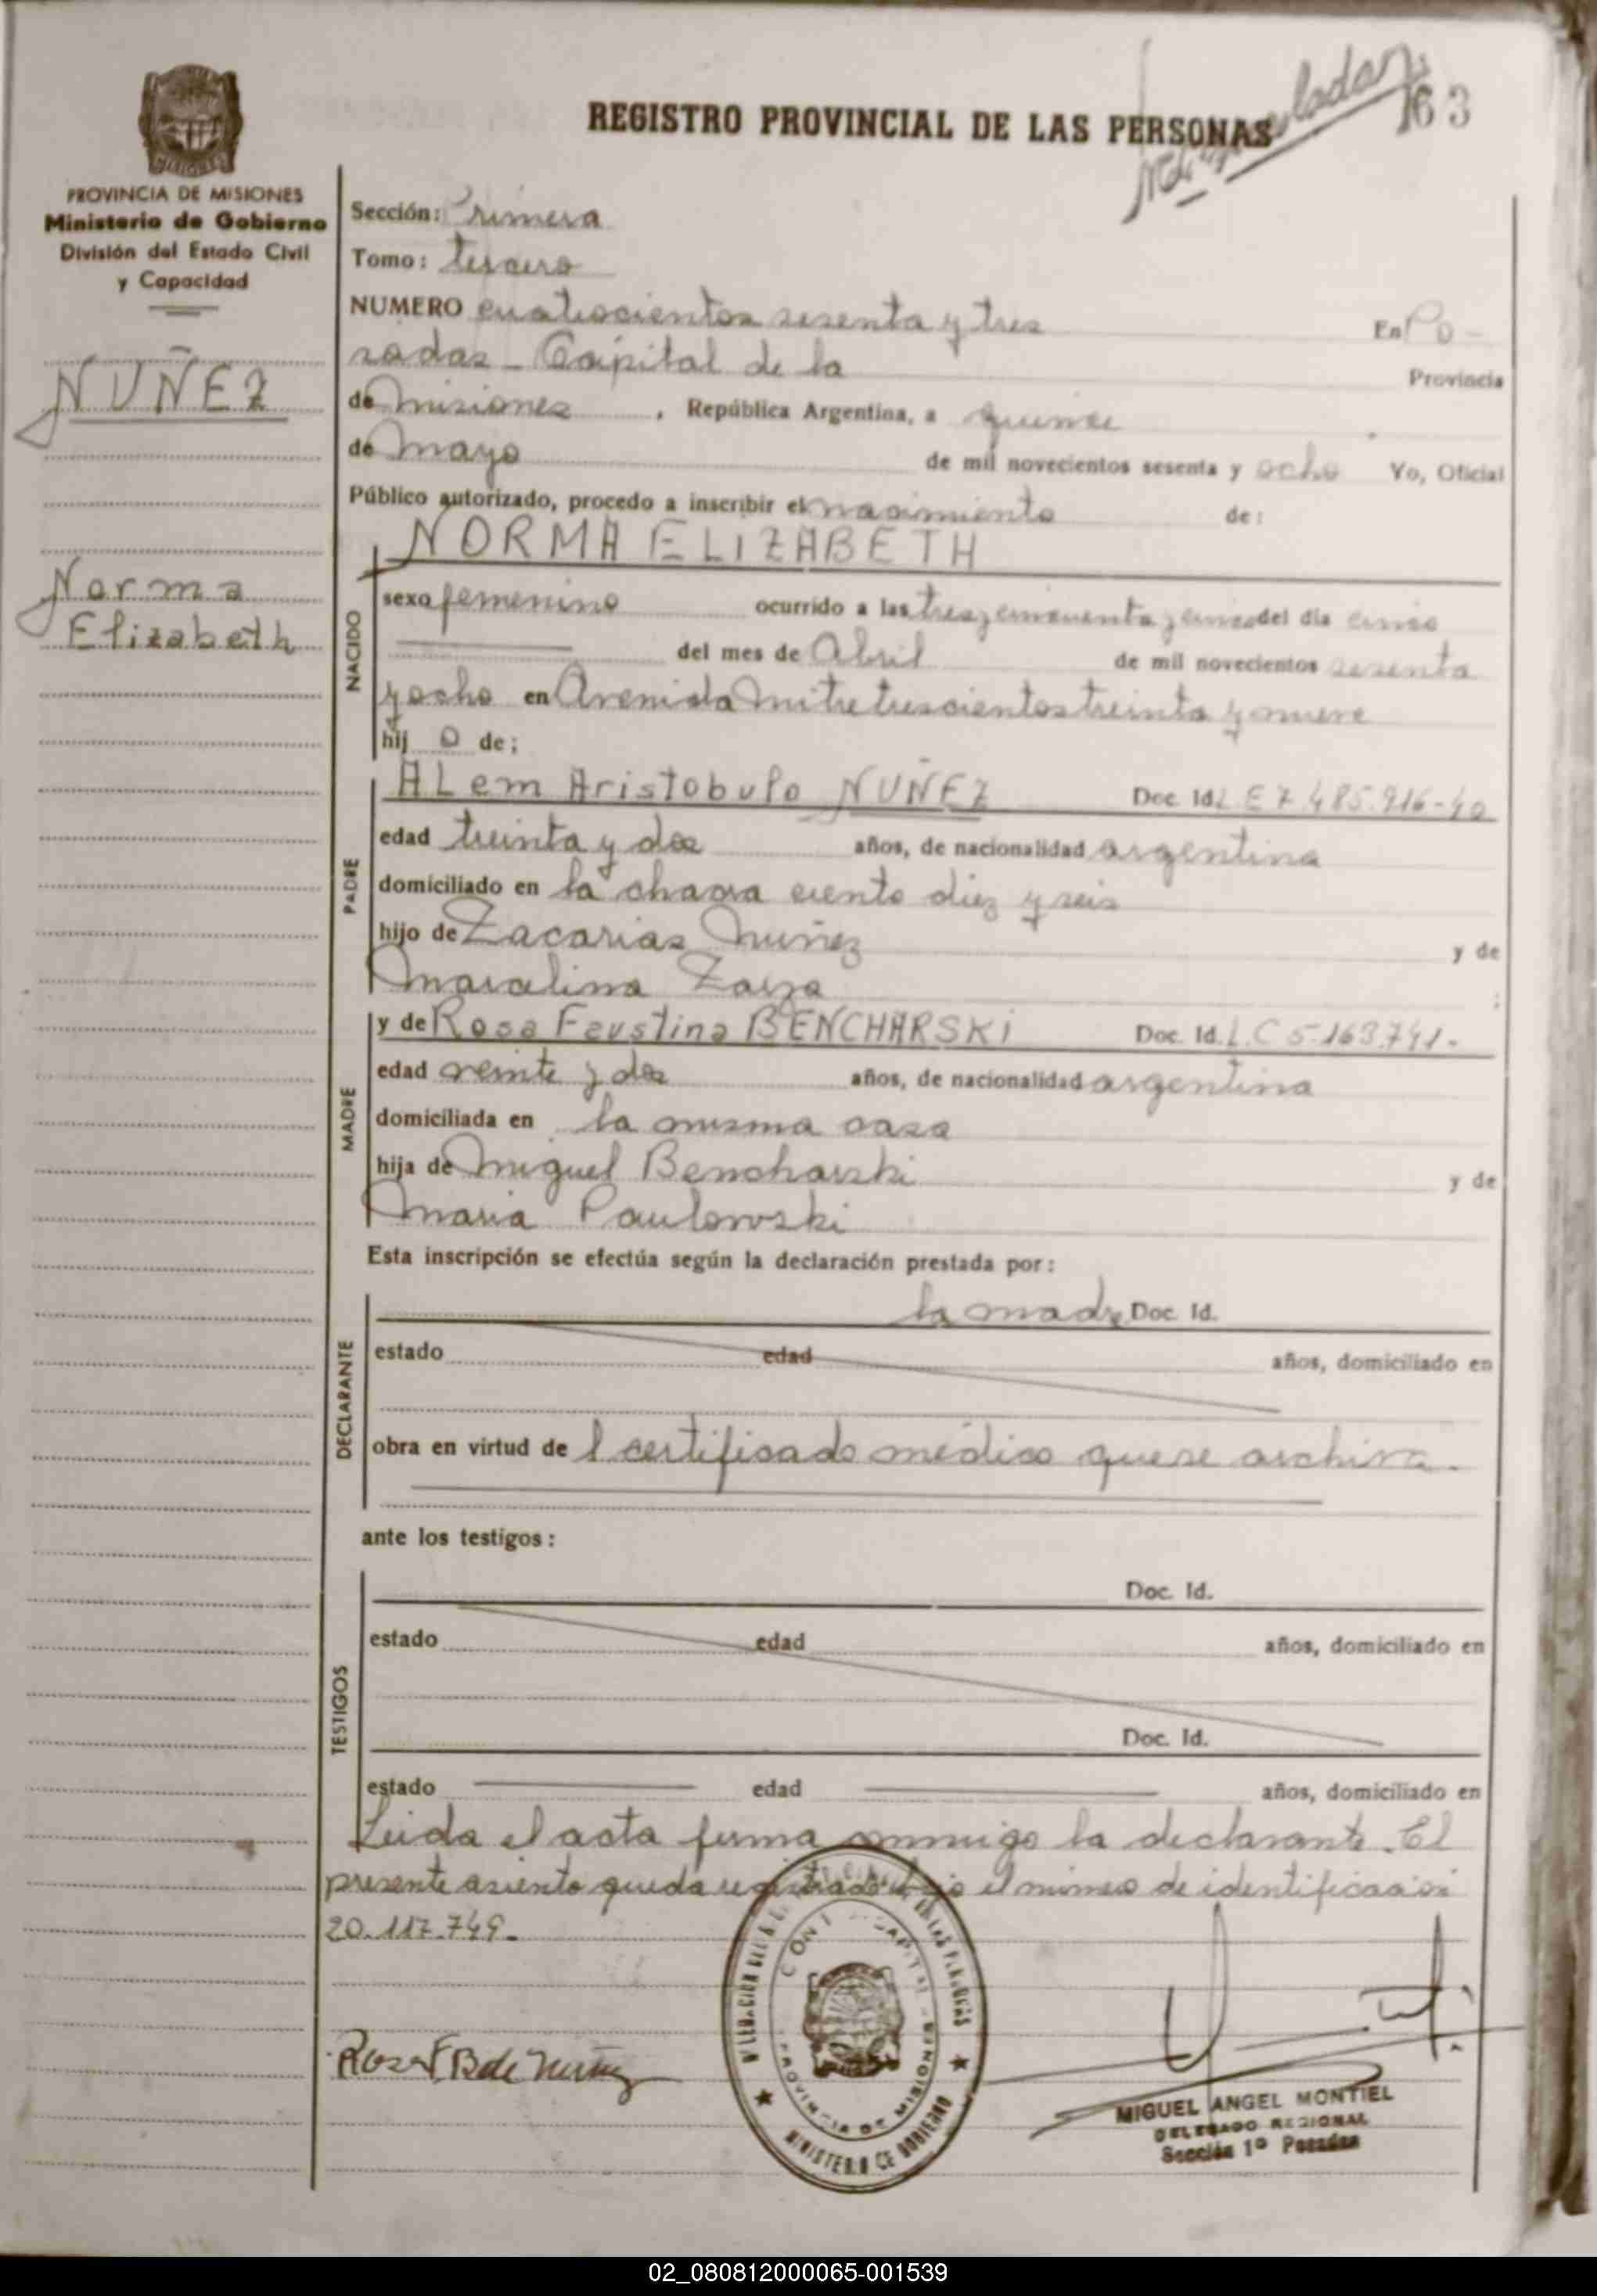 Matriculada
63
REGISTRO PROVINCIAL DE LAS PERSONAS
MISIONES
PROVINCIA DE MISIONES
Ministerio de Gobierno
División del Estado Civil
y Capacidad
NUÑEZ
Norma
Elizabeth
Sección: Primera
Tomo: tercero
NUMERO cuatrocientos sesenta y tres En Po-
sadas - Capital de la Provincia
de Misiones, República Argentina, a quince
de Mayo de mil novecientos sesenta y ocho Yo, Oficial
Público autorizado, procedo a inscribir el nacimiento de:
NORMA ELIZABETH
NACIDO
sexo femenino ocurrido a las tres y cincuenta y cinco del día cinco
del mes de Abril de mil novecientos sesenta
y ocho en Avenida Mitre trescientos treinta y nueve
hij o de;
PADRE
ALem Aristobulo NUÑEZ Doc. Id. L E 7.485.916-40
edad treinta y dos años, de nacionalidad argentina
domiciliado en la chacra ciento diez y seis
hijo de Zacarias Nuñez y de
Marcelina Zarza;
MADRE
y de Rosa Faustina BENCHARSKI Doc. Id. L.C 5.163.741-
edad veinte y dos años, de nacionalidad argentina
domiciliada en la misma casa
hija de Miguel Bencharski y de
Maria Paulowski
Esta inscripción se efectúa según la declaración prestada por:
DECLARANTE
la madre Doc. Id.
estado edad años, domiciliado en
obra en virtud de l certificado médico que se archiva.
ante los testigos:
TESTIGOS
Doc. Id.
estado edad años, domiciliado en
Doc. Id.
estado edad años, domiciliado en
Leida el acta firma conmigo la declarante. El
presente asiento queda registrado bajo el número de identificación
20.117.749.
PROVINCIA DE MISIONES
MINISTERIO DE GOBIERNO
Rosa F. B de Nuñez
MIGUEL ANGEL MONTIEL
DELEGADO REGIONAL
Sección 1º Posadas
02_080812000065-001539